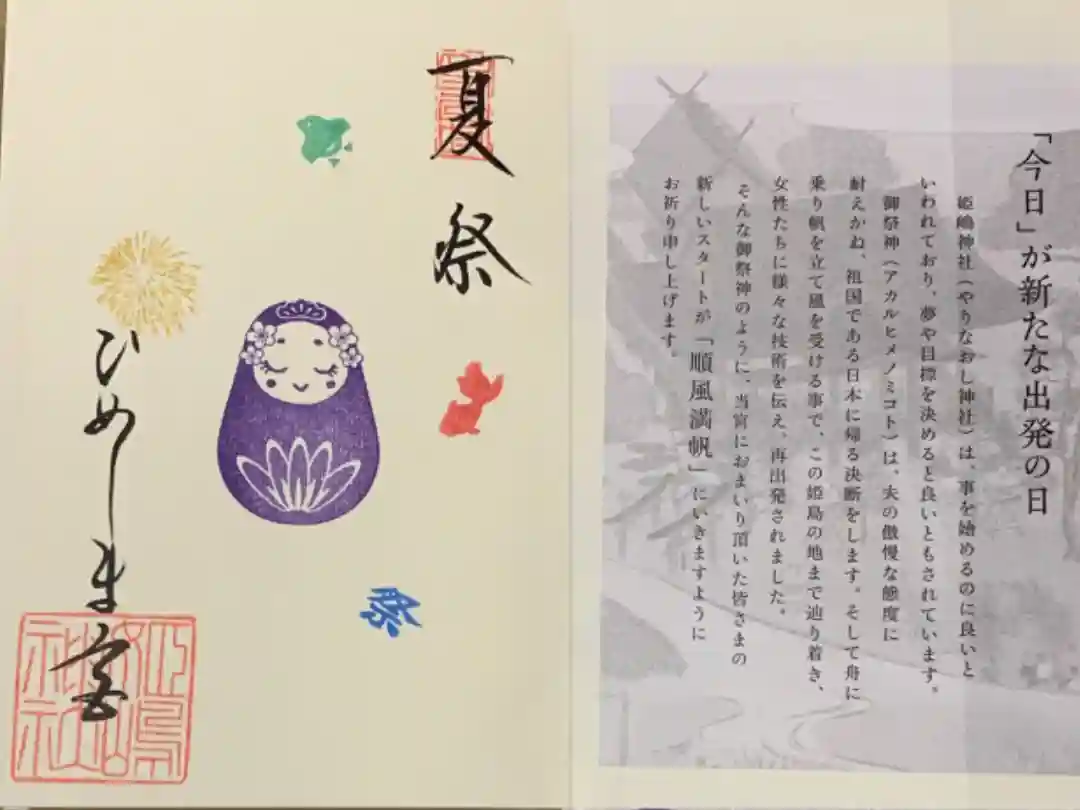 「今日」が新たな出発の日
姫嶋神社（やりなおし神社）は、事を始めるのに良いと
いわれており、夢や目標を決めると良いともされています。
御祭神（アカルヒメノミコト）は、夫の傲慢な態度に
耐えかね、祖国である日本に帰る決断をします。そして舟に
乗り帆を立て風を受ける事で、この姫島の地まで辿り着き、
女性たちに様々な技術を伝え、再出発されました。
そんな御祭神のように、当宮におまいり頂いた皆さまの
新しいスタートが「順風満帆」にいきますように
お祈り申し上げます。
夏祭
祭
ひめしま宮
姫嶋
神社